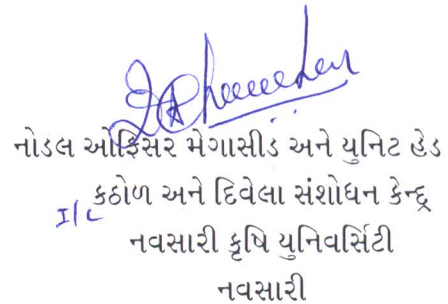 નોડલ ઓફિસર મેગાસીડ અને યુનિટ હેડ
I/c કઠોળ અને દિવેલા સંશોધન કેન્દ્ર
નવસારી કૃષિ યુનિવર્સિટી
નવસારી